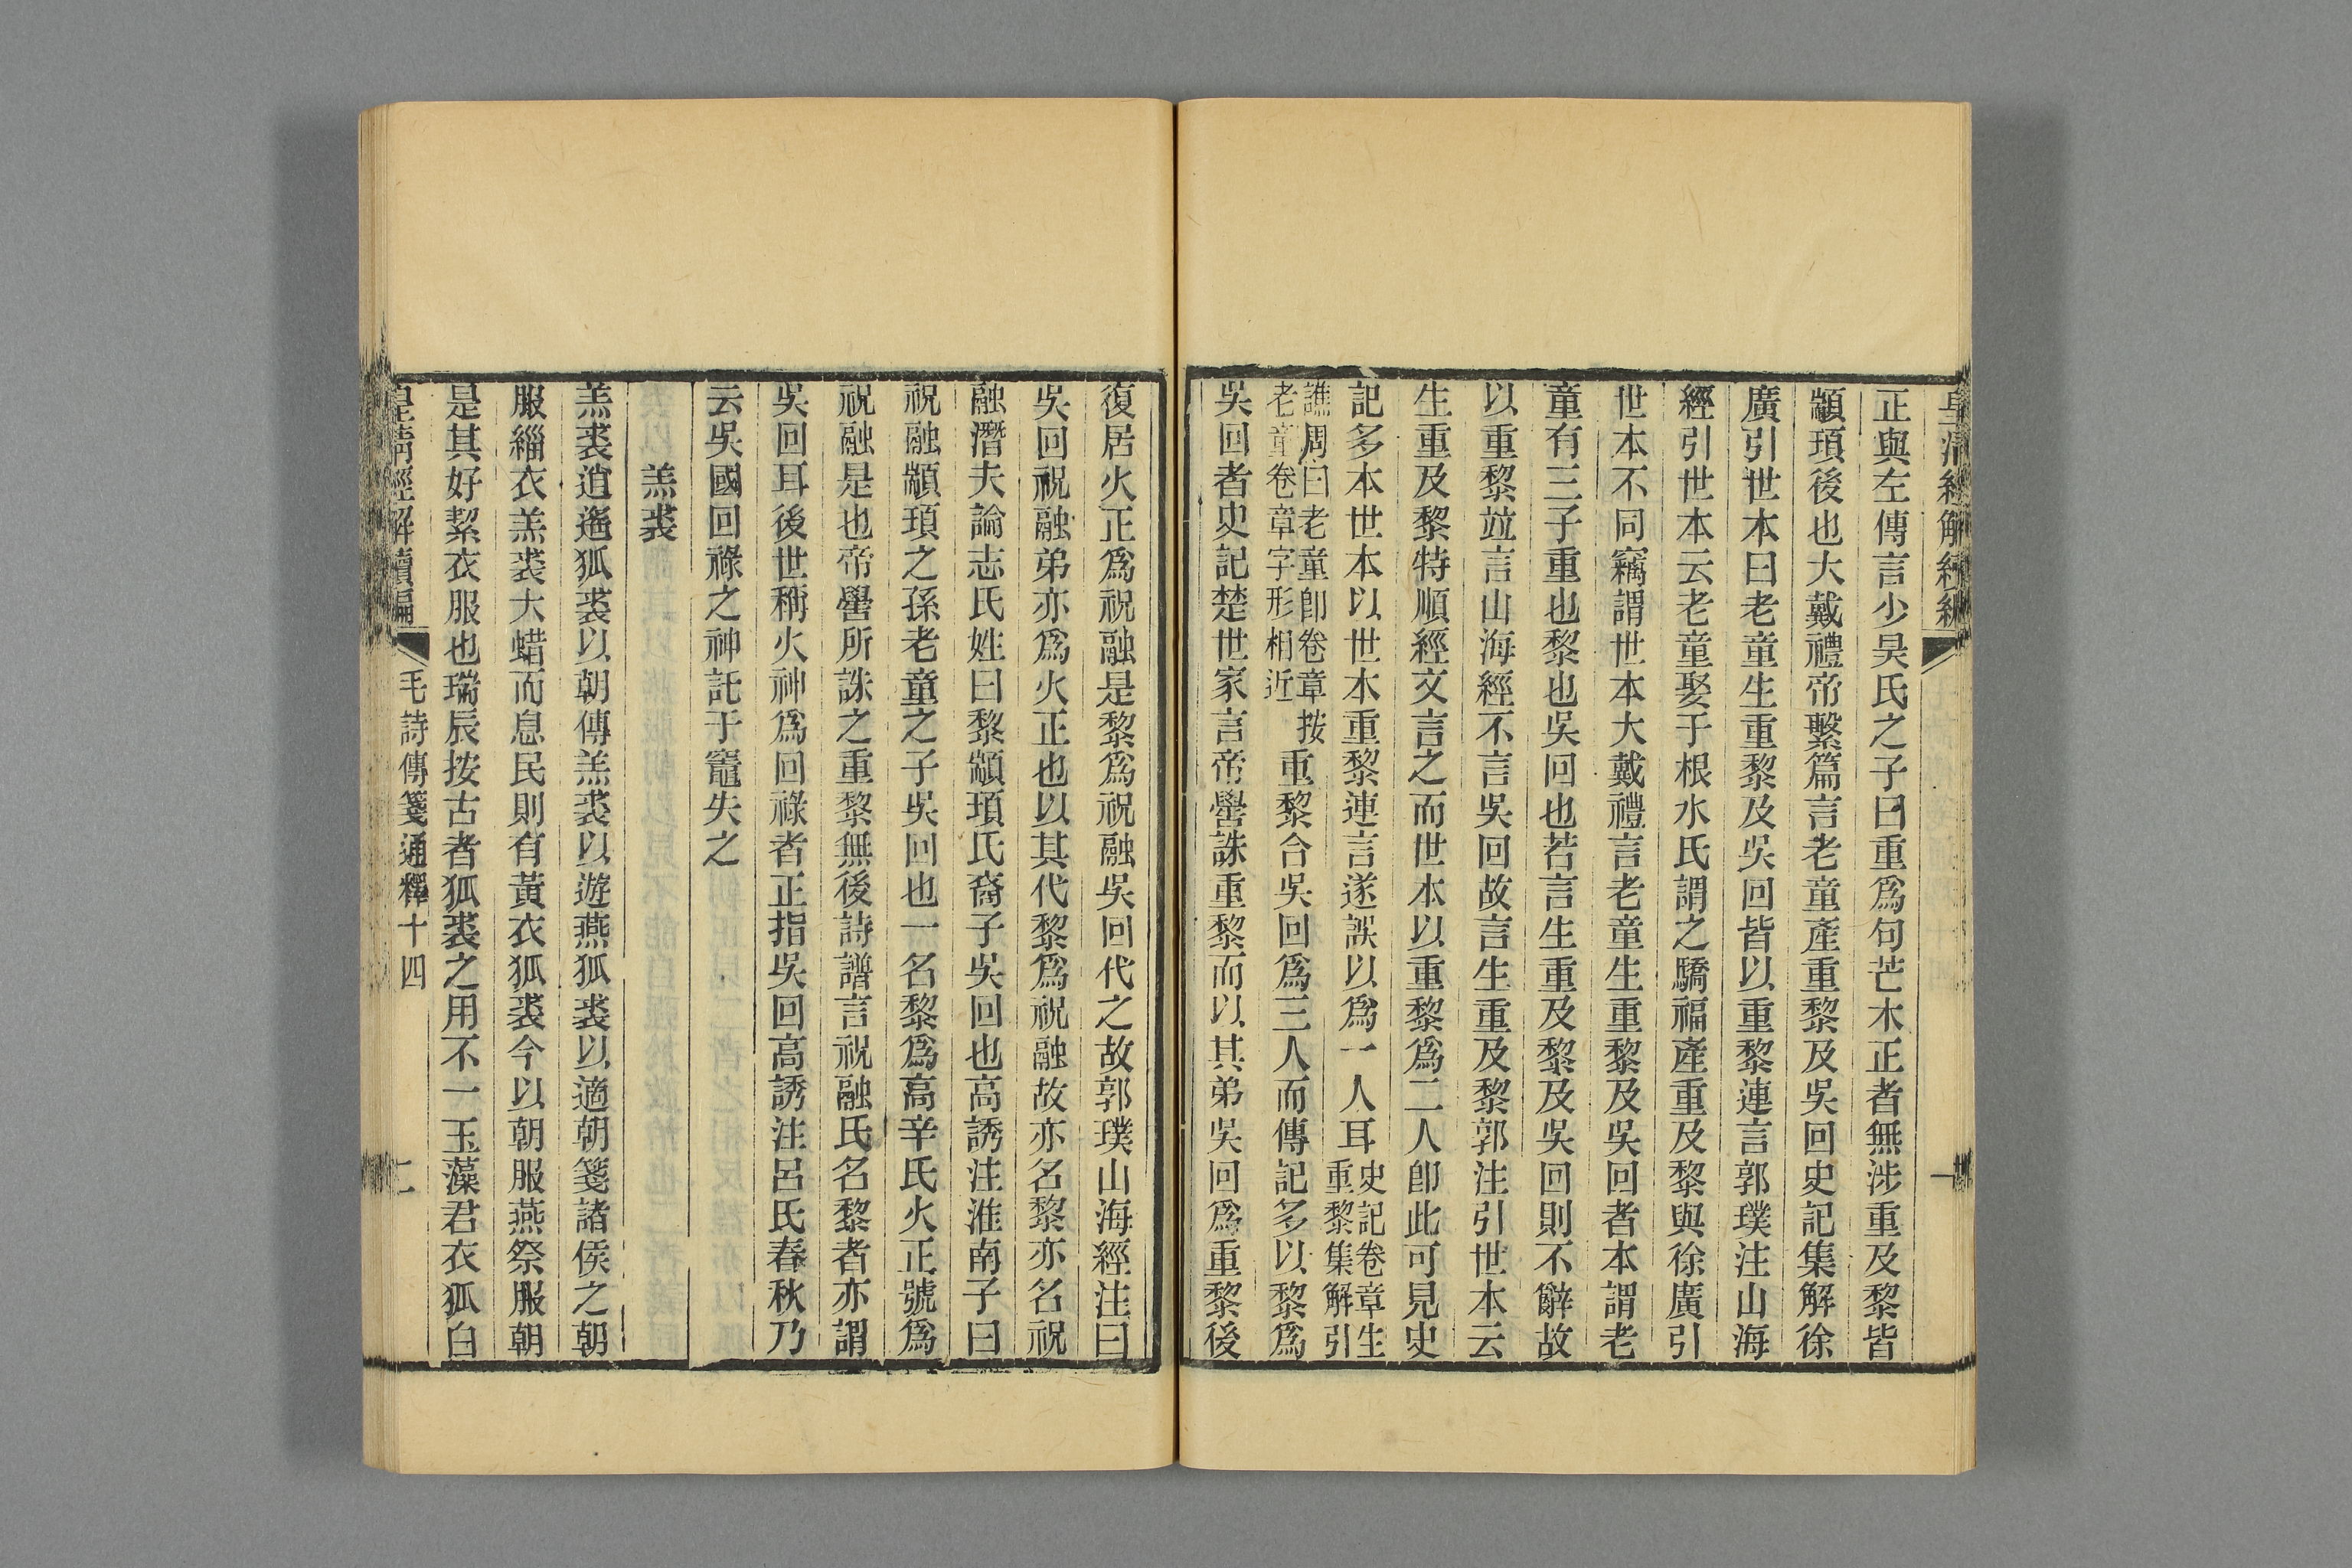 皇清經解續編
一
正與左傳言少昊氏之子曰重爲句芒木正者無涉重及黎皆
顓頊後也大戴禮帝繫篇言老童產重黎及吳回史記集解徐
廣引世本曰老童生重黎及吳回皆以重黎連言郭璞注山海
經引世本云老童娶于根水氏謂之驕福產重及黎與徐廣引
世本不同竊謂世本大戴禮言老童生重黎及吳回者本謂老
童有三子重也黎也吳回也若言生重及黎及吳回則不辭故
以重黎竝言山海經不言吳回故言生重及黎郭注引世本云
生重及黎特順經文言之而世本以重黎爲二人卽此可見史
記多本世本以世本重黎連言遂誤以爲一人耳史記卷章生
重黎集解引
譙周曰老童卽卷章按
老童卷章字形相近重黎合吳回爲三人而傳記多以黎爲
吳回者史記楚世家言帝嚳誅重黎而以其弟吳回爲重黎後
復居火正爲祝融是黎爲祝融吳回代之故郭璞山海經注曰
吳回祝融弟亦爲火正也以其代黎爲祝融故亦名黎亦名祝
融潛夫論志氏姓曰黎顓頊氏裔子吳回也高誘注淮南子曰
祝融顓頊之孫老童之子吳回也一名黎爲高辛氏火正號爲
祝融是也帝嚳所誅之重黎無後詩譜言祝融氏名黎者亦謂
吳回耳後世稱火神爲回祿者正指吳回高誘注呂氏春秋乃
云吳國回祿之神託于竈失之
羔裘
羔裘逍遙狐裘以朝傳羔裘以遊燕狐裘以適朝箋諸侯之朝
服緇衣羔裘大蜡而息民則有黃衣狐裘今以朝服燕祭服朝
是其好絜衣服也瑞辰按古者狐裘之用不一玉藻君衣狐白
皇清經解續編
毛詩傳箋通釋十四
二